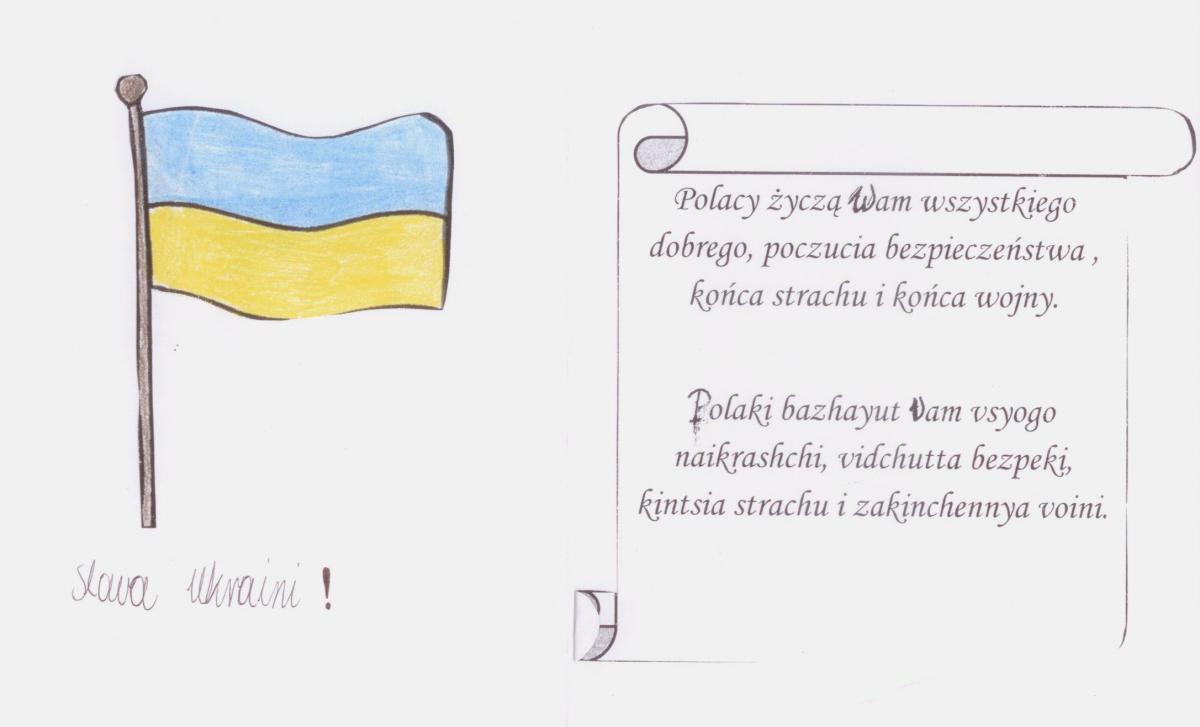 Slava Ukraini !
Polacy życzą Wam wszystkiego
dobrego, poczucia bezpieczeństwa ,
końca strachu i końca wojny.
Polaki bazhayut Vam vsyogo
naikrashchi, vidchutta bezpeki,
kintsia strachu i zakinchennya voini.